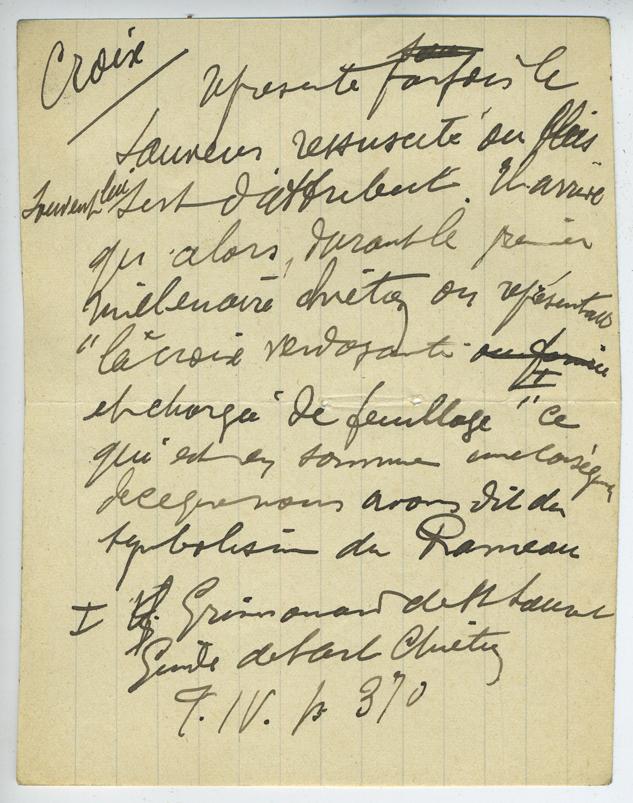 Croix
représente parfois le
Sauveur ressuscité ou plus
souvent lui sert d'attribut. Il arrive
qu'alors, durant le premier
millénaire chrétien on représentait
"la croix verdoyante
I
et chargée de feuillage" ce
qui est en somme une conséqu
de ce que nous avons dit du
symbolisme du Rameau
I Cf. Grimouard de St Laurent
Guide de l'art Chrétien
T. IV. p. 370